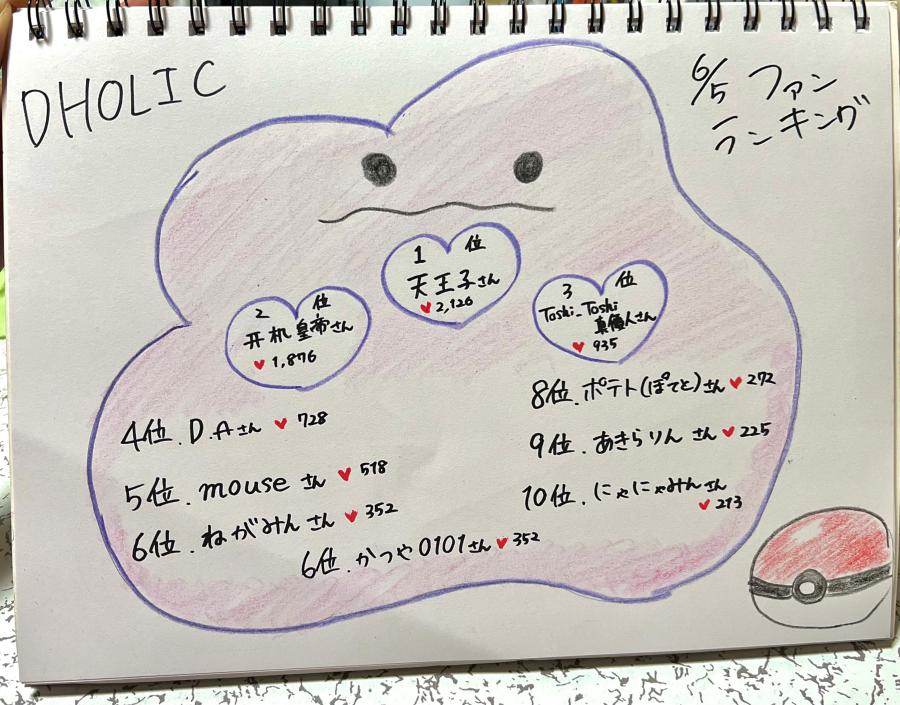 DHOLIC
6/5 ファン
ランキング
1位
天王子さん
♥2,126
2位
开机皇帝さん
♥1,876
3位
Toshi_Toshi
真傾人さん
♥935
4位.D.Aさん♥728
5位.mouseさん♥518
6位.ねがみんさん♥352
6位.かつや0101さん♥352
8位.ポテト(ぽてと)さん♥272
9位.あきらりんさん♥225
10位.にゃにゃみんさん
♥213